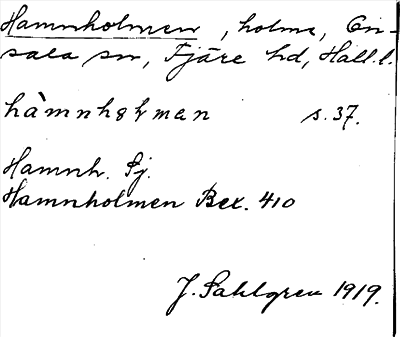 Hamnholmen, holme, On-
sala sn, Fjäre hd, Hall. l.
hàmnhɞɫman s. 37.
Hamnh. Sj.
Hamnholmen Bex. 410
J. Sahlgren 1919.